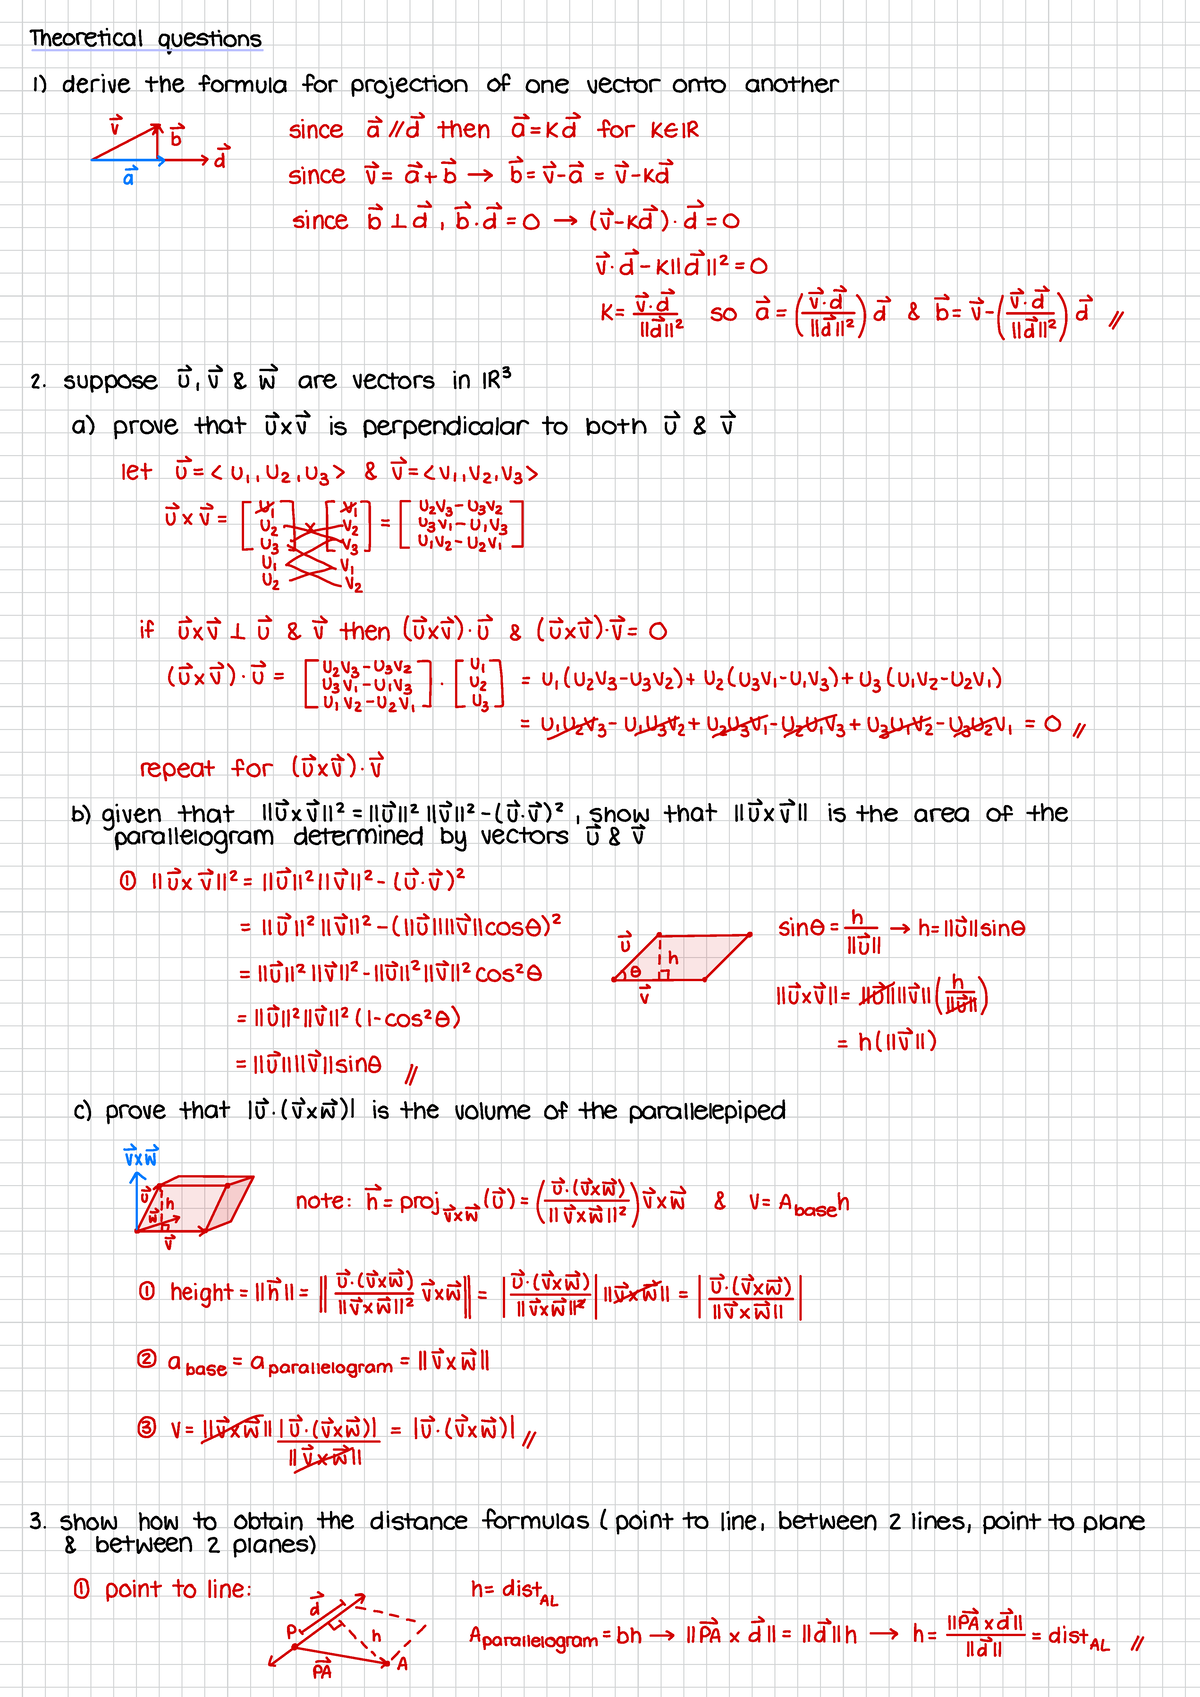 Theoretical questions
1) derive the formula for projection of one vector onto another
v⃗ b⃗ d⃗ a⃗
since a⃗ // d⃗ then a⃗ = Kd⃗ for K∈IR
since v⃗ = a⃗ + b⃗ → b⃗ = v⃗ - a⃗ = v⃗ - Kd⃗
since b⃗ ⊥ d⃗, b⃗·d⃗ = 0 → (v⃗ - Kd⃗)·d⃗ = 0
v⃗·d⃗ - K||d⃗||² = 0
K = v⃗·d⃗/||d⃗||² so a⃗ = (v⃗·d⃗/||d⃗||²) d⃗ & b⃗ = v⃗ - (v⃗·d⃗/||d⃗||²) d⃗ //
2. suppose u⃗, v⃗ & w⃗ are vectors in IR³
a) prove that u⃗×v⃗ is perpendicalar to both u⃗ & v⃗
let u⃗ = <u₁, u₂, u₃> & v⃗ = <v₁, v₂, v₃>
u⃗ × v⃗ = [u₁ u₂ u₃] × [v₁ v₂ v₃] = [u₂v₃ - u₃v₂ u₃v₁ - u₁v₃ u₁v₂ - u₂v₁]
u₁ v₁
u₂ v₂
if u⃗×v⃗ ⊥ u⃗ & v⃗ then (u⃗×v⃗)·u⃗ & (u⃗×v⃗)·v⃗ = 0
(u⃗×v⃗)·u⃗ = [u₂v₃ - u₃v₂ u₃v₁ - u₁v₃ u₁v₂ - u₂v₁] · [u₁ u₂ u₃] = u₁(u₂v₃ - u₃v₂) + u₂(u₃v₁ - u₁v₃) + u₃(u₁v₂ - u₂v₁)
= u₁u₂v₃ - u₁u₃v₂ + u₂u₃v₁ - u₂u₁v₃ + u₃u₁v₂ - u₃u₂v₁ = 0 //
repeat for (u⃗×v⃗)·v⃗
b) given that ||u⃗×v⃗||² = ||u⃗||² ||v⃗||² - (u⃗·v⃗)², show that ||u⃗×v⃗|| is the area of the
parallelogram determined by vectors u⃗ & v⃗
① ||u⃗×v⃗||² = ||u⃗||² ||v⃗||² - (u⃗·v⃗)²
= ||u⃗||² ||v⃗||² - (||u⃗|| ||v⃗|| cosθ)²
= ||u⃗||² ||v⃗||² - ||u⃗||² ||v⃗||² cos²θ
= ||u⃗||² ||v⃗||² (1 - cos²θ)
= ||u⃗|| ||v⃗|| sinθ //
u⃗ h θ v⃗
sinθ = h/||u⃗|| → h = ||u⃗|| sinθ
||u⃗×v⃗|| = ||u⃗|| ||v⃗|| (h/||u⃗||)
= h(||v⃗||)
c) prove that |u⃗·(v⃗×w⃗)| is the volume of the parallelepiped
v⃗×w⃗
u⃗ h w⃗ v⃗
note: h⃗ = proj v⃗×w⃗ (u⃗) = (u⃗·(v⃗×w⃗)/||v⃗×w⃗||²) v⃗×w⃗ & V = A base h
① height = ||h⃗|| = || u⃗·(v⃗×w⃗)/||v⃗×w⃗||² v⃗×w⃗ || = | u⃗·(v⃗×w⃗)/||v⃗×w⃗||² | ||v⃗×w⃗|| = | u⃗·(v⃗×w⃗)/||v⃗×w⃗|| |
② a base = a parallelogram = ||v⃗×w⃗||
③ V = ||v⃗×w⃗|| |u⃗·(v⃗×w⃗)|/||v⃗×w⃗|| = |u⃗·(v⃗×w⃗)| //
3. show how to obtain the distance formulas (point to line, between 2 lines, point to plane
& between 2 planes)
① point to line:
d⃗ P h PA⃗ A
h = dist AL
A parallelogram = bh → ||PA⃗ × d⃗|| = ||d⃗||h → h = ||PA⃗ × d⃗||/||d⃗|| = dist AL //